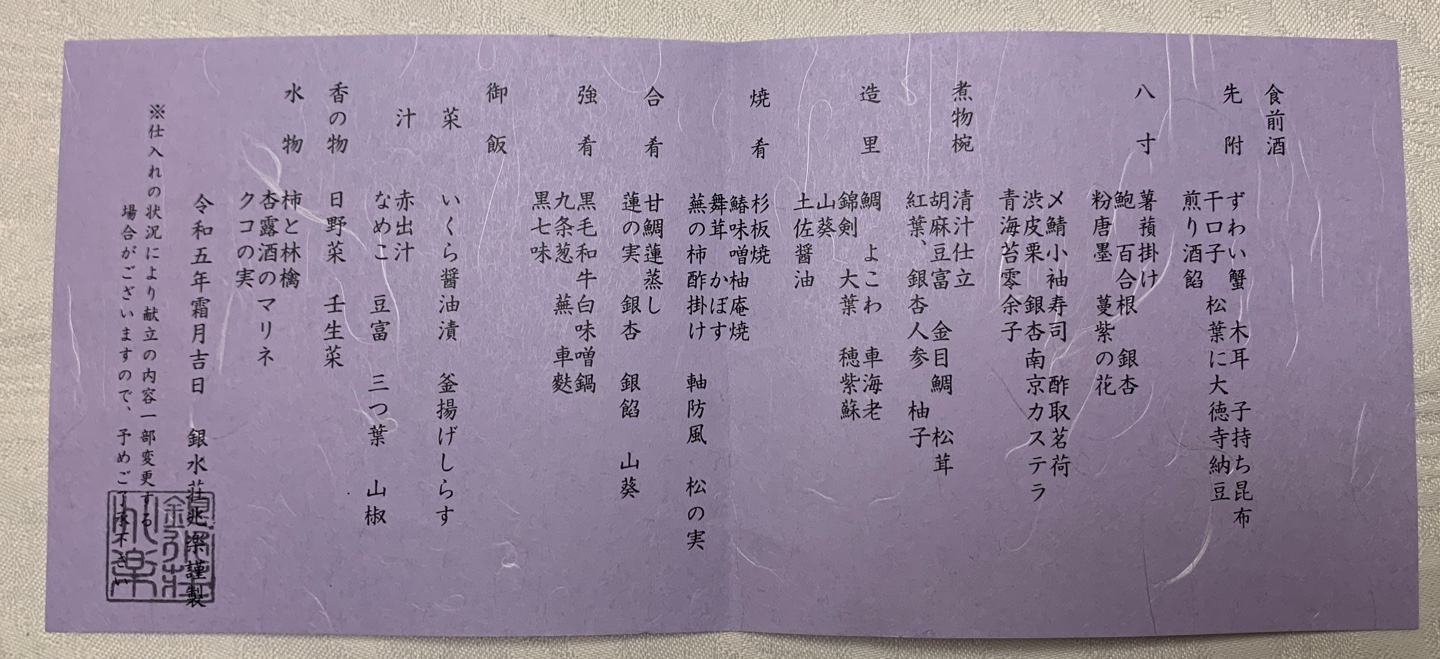 食前酒
先 附
ずわい蟹 木耳 子持ち昆布
干口子 松葉に大徳寺納豆
煎り酒餡
八 寸
薯蕷掛け
鮑 百合根 銀杏
粉唐墨 蔓紫の花
〆鯖小袖寿司 酢取茗荷
渋皮栗 銀杏南京カステラ
青海苔零余子
煮物椀
清汁仕立
胡麻豆富 金目鯛 松茸
紅葉、銀杏人参 柚子
造 里
鯛 よこわ 車海老
錦剣 大葉 穂紫蘇
山葵
土佐醤油
焼 肴
杉板焼
鰆味噌柚庵焼
舞茸 かぼす
蕪の柿酢掛け 軸防風 松の実
合 肴
甘鯛蓮蒸し
蓮の実 銀杏 銀餡 山葵
強 肴
黒毛和牛白味噌鍋
九条葱 蕪 車麩
黒七味
御 飯
菜
いくら醤油漬 釜揚げしらす
汁
赤出汁
なめこ 豆富 三つ葉 山椒
香の物
日野菜 壬生菜
水 物
柿と林檎
杏露酒のマリネ
クコの実
令和五年霜月吉日 銀水荘兆楽謹製
※仕入れの状況により献立の内容一部変更する
場合がございますので、予めご了承下さい
銀水荘
兆楽